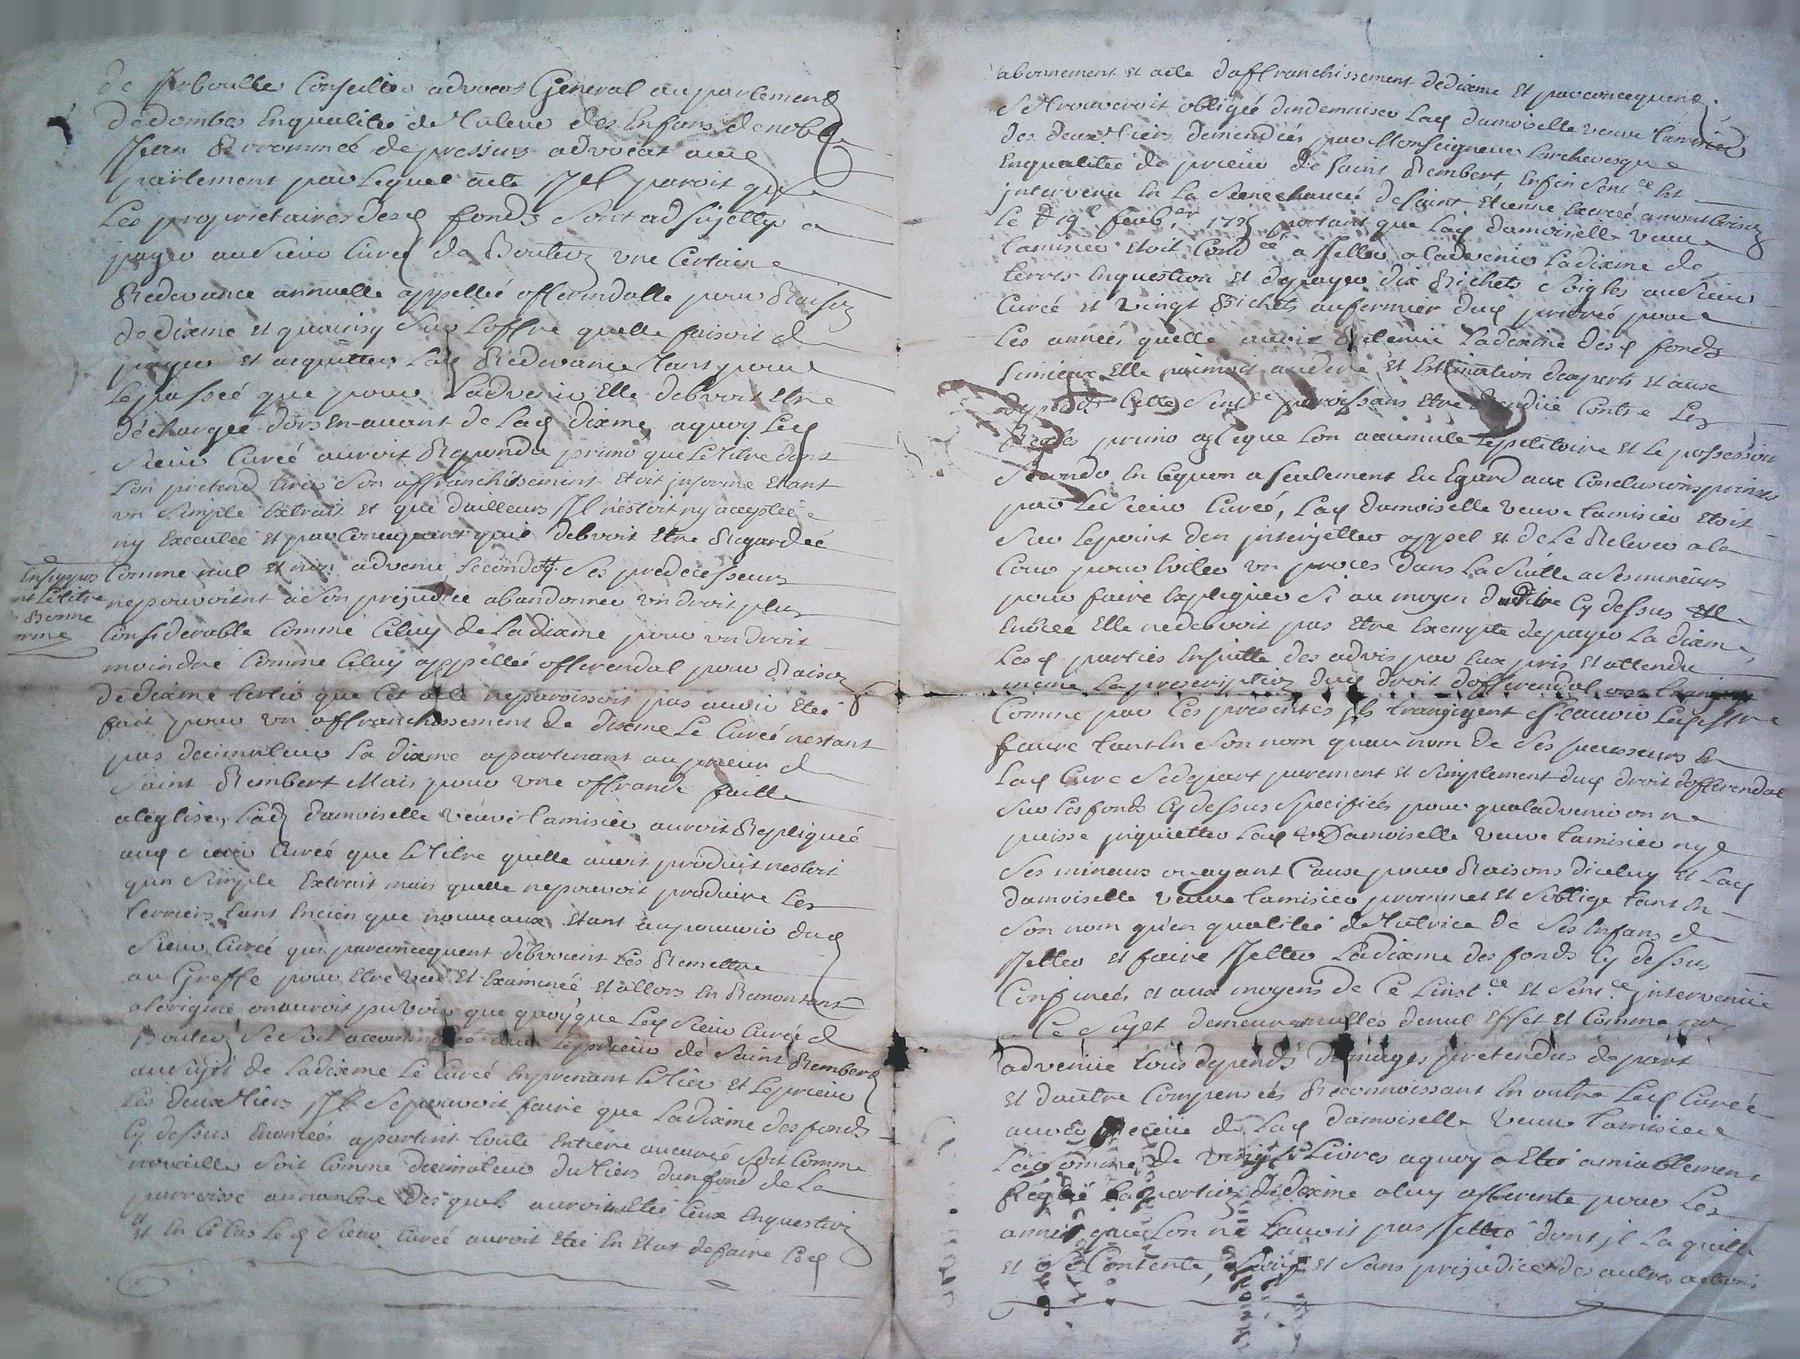 de conseiller advocat General au parlement
de dombes En qualitée de tuteur des Enfans de noble
Jean advocat au
parlement par Lequel acte Jl paroit que
Les proprietaires des fonds sont adsujettis a
payer au sieur Curé de Bouteon une Certaine
Redevance annuelle appellée offerendalle pour Raison
de dixme et quainsy sur Loffre quelle faisoit de
payer et acquitter Lad Redevance tant pour
Le passée que pour Ladvenir Elle debvroit Etre
déchargée dorsEn-avant de Lad dixme, a quoy Led
sieur Curée auroit Repondu primo que Le titre dont
Lon pretend tirer son affranchissement Etoit informe Etant
un simple Extrait et que dailleurs Jl nestoit ny acceptée
ny Executée et par Consequent quil debvoit Etre Regardée
Comme nul et non advenu secondo ses predecesseurs
En suppos
ant Le titre
Bonne
forme
ne pouvoient a son prejudice abandonner un droit plus
Considerable Comme Celuy de La dixme pour un droit
moindre Comme Celuy appellée offerendal pour Raison
de dixme tertio que Cet acte ne paroissoit pas avoir Etée
fait pour un affranchissement de dixme Le Curée nestant
pas decimateur La dixme appartenant au prieur de
saint Rembert Mais pour une offrande faitte
a leglise, Lad damoiselle veuve tamisier auroit Repliquée
aud sieur Curée que Le titre quelle avoit produit nestoit
qun simple Extrait mais quelle ne pouvoit produire Les
terriers tant Encien que nouveaux Etant au pouvoir dud
sieur Curée qui par concequent debvoient Les Remettre
au Greffe pour Etre veu Et Examinée et allors En Remontant
a lorigine on auroit pu voir que quoyque Led sieur Curée de
Bouteon se soit accommodée avec Le prieur de Saint Rembert
au sujet de La dixme Le Curée En prenant Le tiers et Le prieur
Les deux tiers Jl se pouvoit faire que La dixme des fonds
Cy dessus Enoncés apartint toute Entiere au curé soit Comme
novaille soit Comme decimateur du tiers dun fond de La
parroisse au nombre des quels auroient Etée Ceux En question
et En Ce Cas Led sieur Curée auroit Etée En Etat de faire Led
abonnement et acte daffranchissement de dixme Et par concequent
se trouveroit obligée dindemniser Lad damoiselle veuve tamisier
des deux tiers demandées par Monseigneur Larchevesque
En qualitée de prieur de saint Rembert, Enfin sent ce Est
jntervenu En La senechaucée de saint Etienne Exercée a montbrison
Le 19e portant que Lad damoiselle veuve
tamisier Etoit Cond ée a jetter a ladvenir La dixme des
terres En question Et de payer dix Bichets seigles au sieur
Curée et vingt Bichets au fermier dud prieuré pour
Les années quelle avoit Retenu La dixme desd fonds
si mieux Elle naimoit au dire Et Estimation dexperts Et aux
depends Cette sent ce paroissant Etre Rendue Contre Les
Regles primo En Ceque Lon accumule Le petitoire et Le possessoir
secondo En Cequon a seulement Eu Egard aux Conclusions prises
par Led sieur Curée, Lad damoiselle veuve tamisier Etoit
sur Le point den jnterjetter appel et de Le Relever a la
Cour pour Eviter un proces dans La suitte a ses mineurs
pour faire Expliquer si au moyen du titre Cy dessus
Enoncé Elle ne debvoit pas Etre Exempte de payer La dixme,
Lesd parties En suitte des advis par Eux pris Et attendu
meme La prescription dud droit dofferendal
Comme par Ces presentes jls transigent scavoir Led sr
faure tant En son nom quau nom de ses successeurs En
Lad Cure se depart purement Et simplement dud droit dofferendal
sur Les fonds Cy dessus specifiés pour qua ladvenir on ne
puisse jnquietter Lad Damoiselle veuve tamisier ny
ses mineurs ou ayant Cause pour Raisons diceluy Et Lad
damoiselle veuve tamisier prommet Et soblige tant En
son nom quen qualitée de tutrice de ses Enfans de
Jetter et faire Jetter La dixme des fonds Cy dessus
Confinés et aux moyens de Ce Linst ce Et sent ce jntervenüe
a Ce sujet demeurent nulles de nul Effet Et Comme non
advenüe tous depends domages pretendus de part
Et dautre Compensées Reconnoissant En outre Led Curée
avoir Receu de Lad damoiselle veuve tamisier
La somme de vingt Livres a quoy a Etée amiablement
Reglé La portion de dixme a luy afferente pour Les
années que Lon ne Lavoit pas jettée dont jl La quitte
et se Contente, sauf Et sans prejudice des autres actions